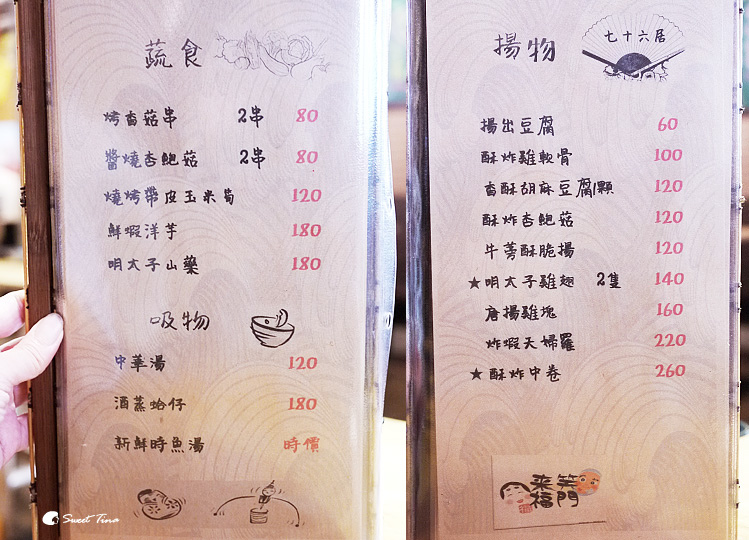 蔬食
烤香菇串 2串 80
醬燒杏鮑菇 2串 80
燒烤帶皮玉米筍 120
鮮蝦洋芋 180
明太子山藥 180
吸物
中華湯 120
酒蒸蛤仔 180
新鮮時魚湯 時價
Sweet Tina
揚物
七十六居
揚出豆腐 60
酥炸雞軟骨 100
香酥胡麻豆腐顆 120
酥炸杏鮑菇 120
牛蒡酥脆揚 120
★明太子雞翅 2隻 140
唐揚雞塊 160
炸蝦天婦羅 220
★酥炸中卷 260
笑門
来福